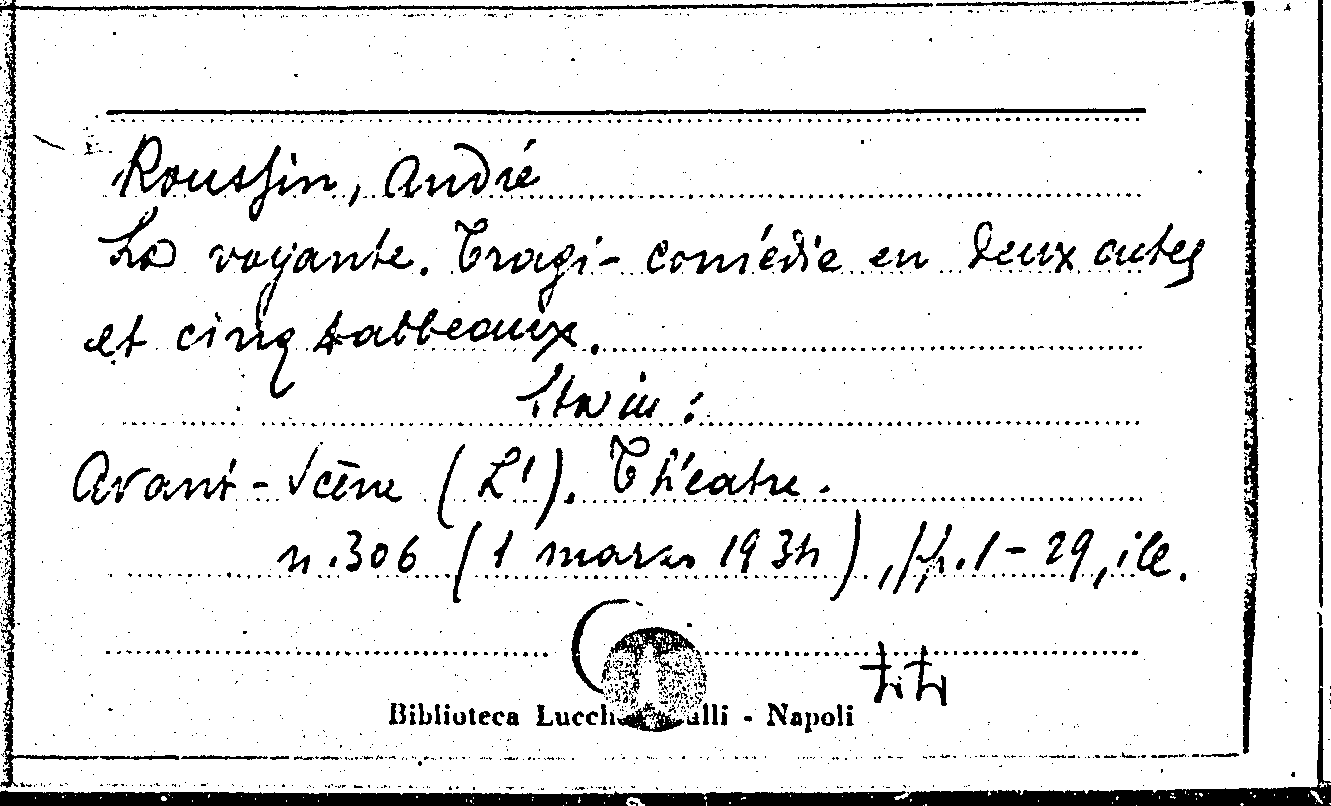 Roussin, André
La voyante. Tragi-comédie en deux actes
et cinq tabbeaux.
Sta in:
Avant-Scène (L'). Théatre.
n.306 (1 marzo 1934), pp.1-29, ill.
tit.
Biblioteca Lucch alli - Napoli